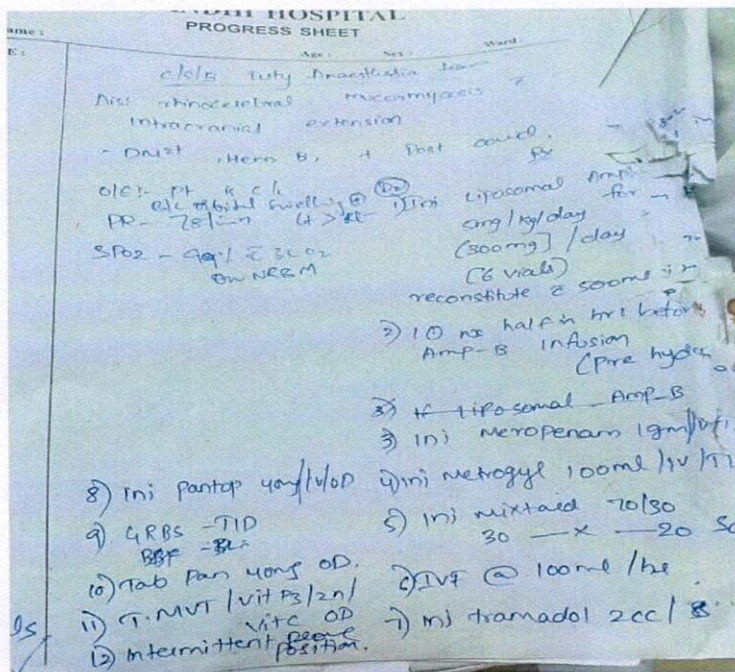 HOSPITAL
PROGRESS SHEET
ame :
Age : Sex : Ward
E :
c/s/B Duty Anaesthesia
Dis: rhinocerebral mucormycosis c̄
intracranial extension
- DM2+ , Hemo B, + Post covid.
O/E:- Pt is c/c
B/L orbital swelling ⊕
PR- 78/min Lt > Rt
SPO2 - c̄ O2
on NRBM
Rx
1) Inj Liposomal Ampi
5mg/kg/day for
(300mg) /day
(6 vials)
reconstitute c̄ 500ml
2) 10 ns half in hr before
Amp-B infusion
(Pre hydra
3) If Liposomal Amp-B
3) inj Meropenam 1gm/
4) inj Metrogyl 100ml /IV /
5) inj Mixtard 70/30
30 — x — 20 Sc
6) IVF @ 100ml /hr
7) inj tramadol 2cc/
8) inj Pantop 40mg/IV/OD
9) GRBS - TID
10) Tab Pan 40mg OD.
11) T. MVT / Vit D3 / Zn /
Vit C OD
12) intermittent prone
position.